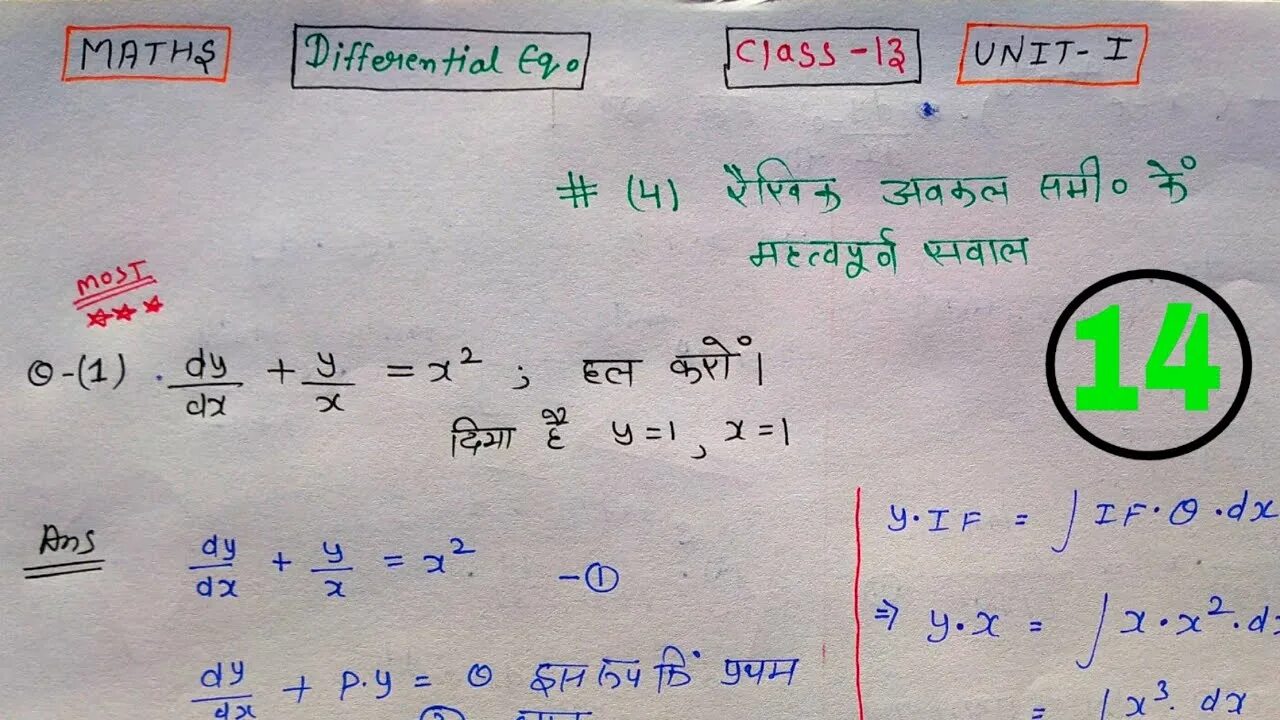 MATHS Differential Eqo Class-13 UNIT-I
# (4) रैखिक अवकल समी० कें
महत्वपूर्ण सवाल
MOST
14
Q-(1) dy/dx + y/x = x² ; हल करों।
दिया है y=1, x=1
Ans dy/dx + y/x = x² -①
dy/dx + P.y = Q इस रूप कि प्रथम
y.IF = ∫ IF.Q.dx
⇒ y.x = ∫ x.x².dx
= ∫ x³. dx